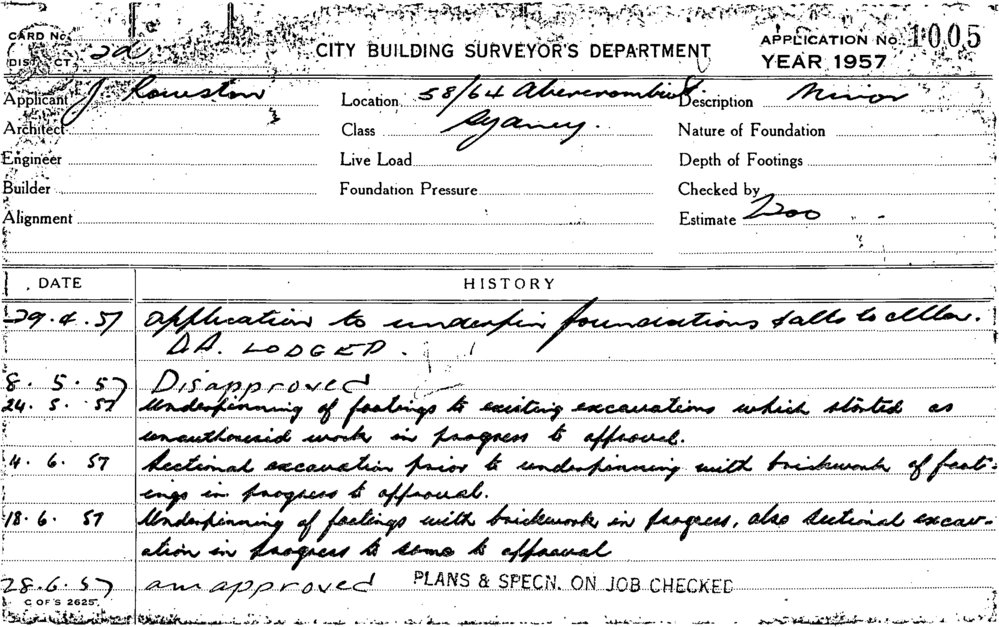 CARD No.
DISTRICT 2d
CITY BUILDING SURVEYOR'S DEPARTMENT
APPLICATION No. 1005
YEAR 1957
Applicant J
Location 58/64 Abercrombie St.
Description Minor
Architect
Class Sydney.
Nature of Foundation
Engineer
Live Load
Depth of Footings
Builder
Foundation Pressure
Checked by
Alignment
Estimate 200
DATE HISTORY
29.4.57 Application to underpin foundations & alts to cellar.
D.A. LODGED.
8.5.57 Disapproved
24.5.57 Underpinning of footings to existing excavations which started as
unauthorised work in progress to approval.
4.6.57 Sectional excavation prior to underpinning with brickwork of foot-
ings in progress to approval.
18.6.57 Underpinning of footings with brickwork in progress, also sectional excav-
ation in progress to same to approval
28.6.57 am approved PLANS & SPECN. ON JOB CHECKED
C OF S 2625